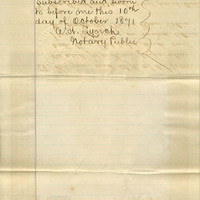 Subscribed and sworn
to before me this 10th
day of October 1891
Notary Public